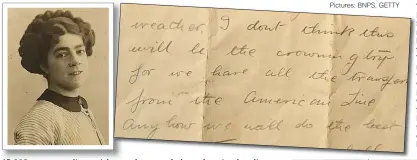 Pictures: BNPS, GETTY
weather, I dont think this
will be the crowning trip
for we have all the transfers
from the American Line
anyhow we will do the best